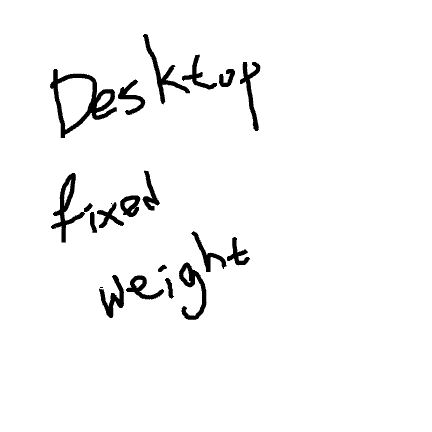 Desktop
fixed
weight